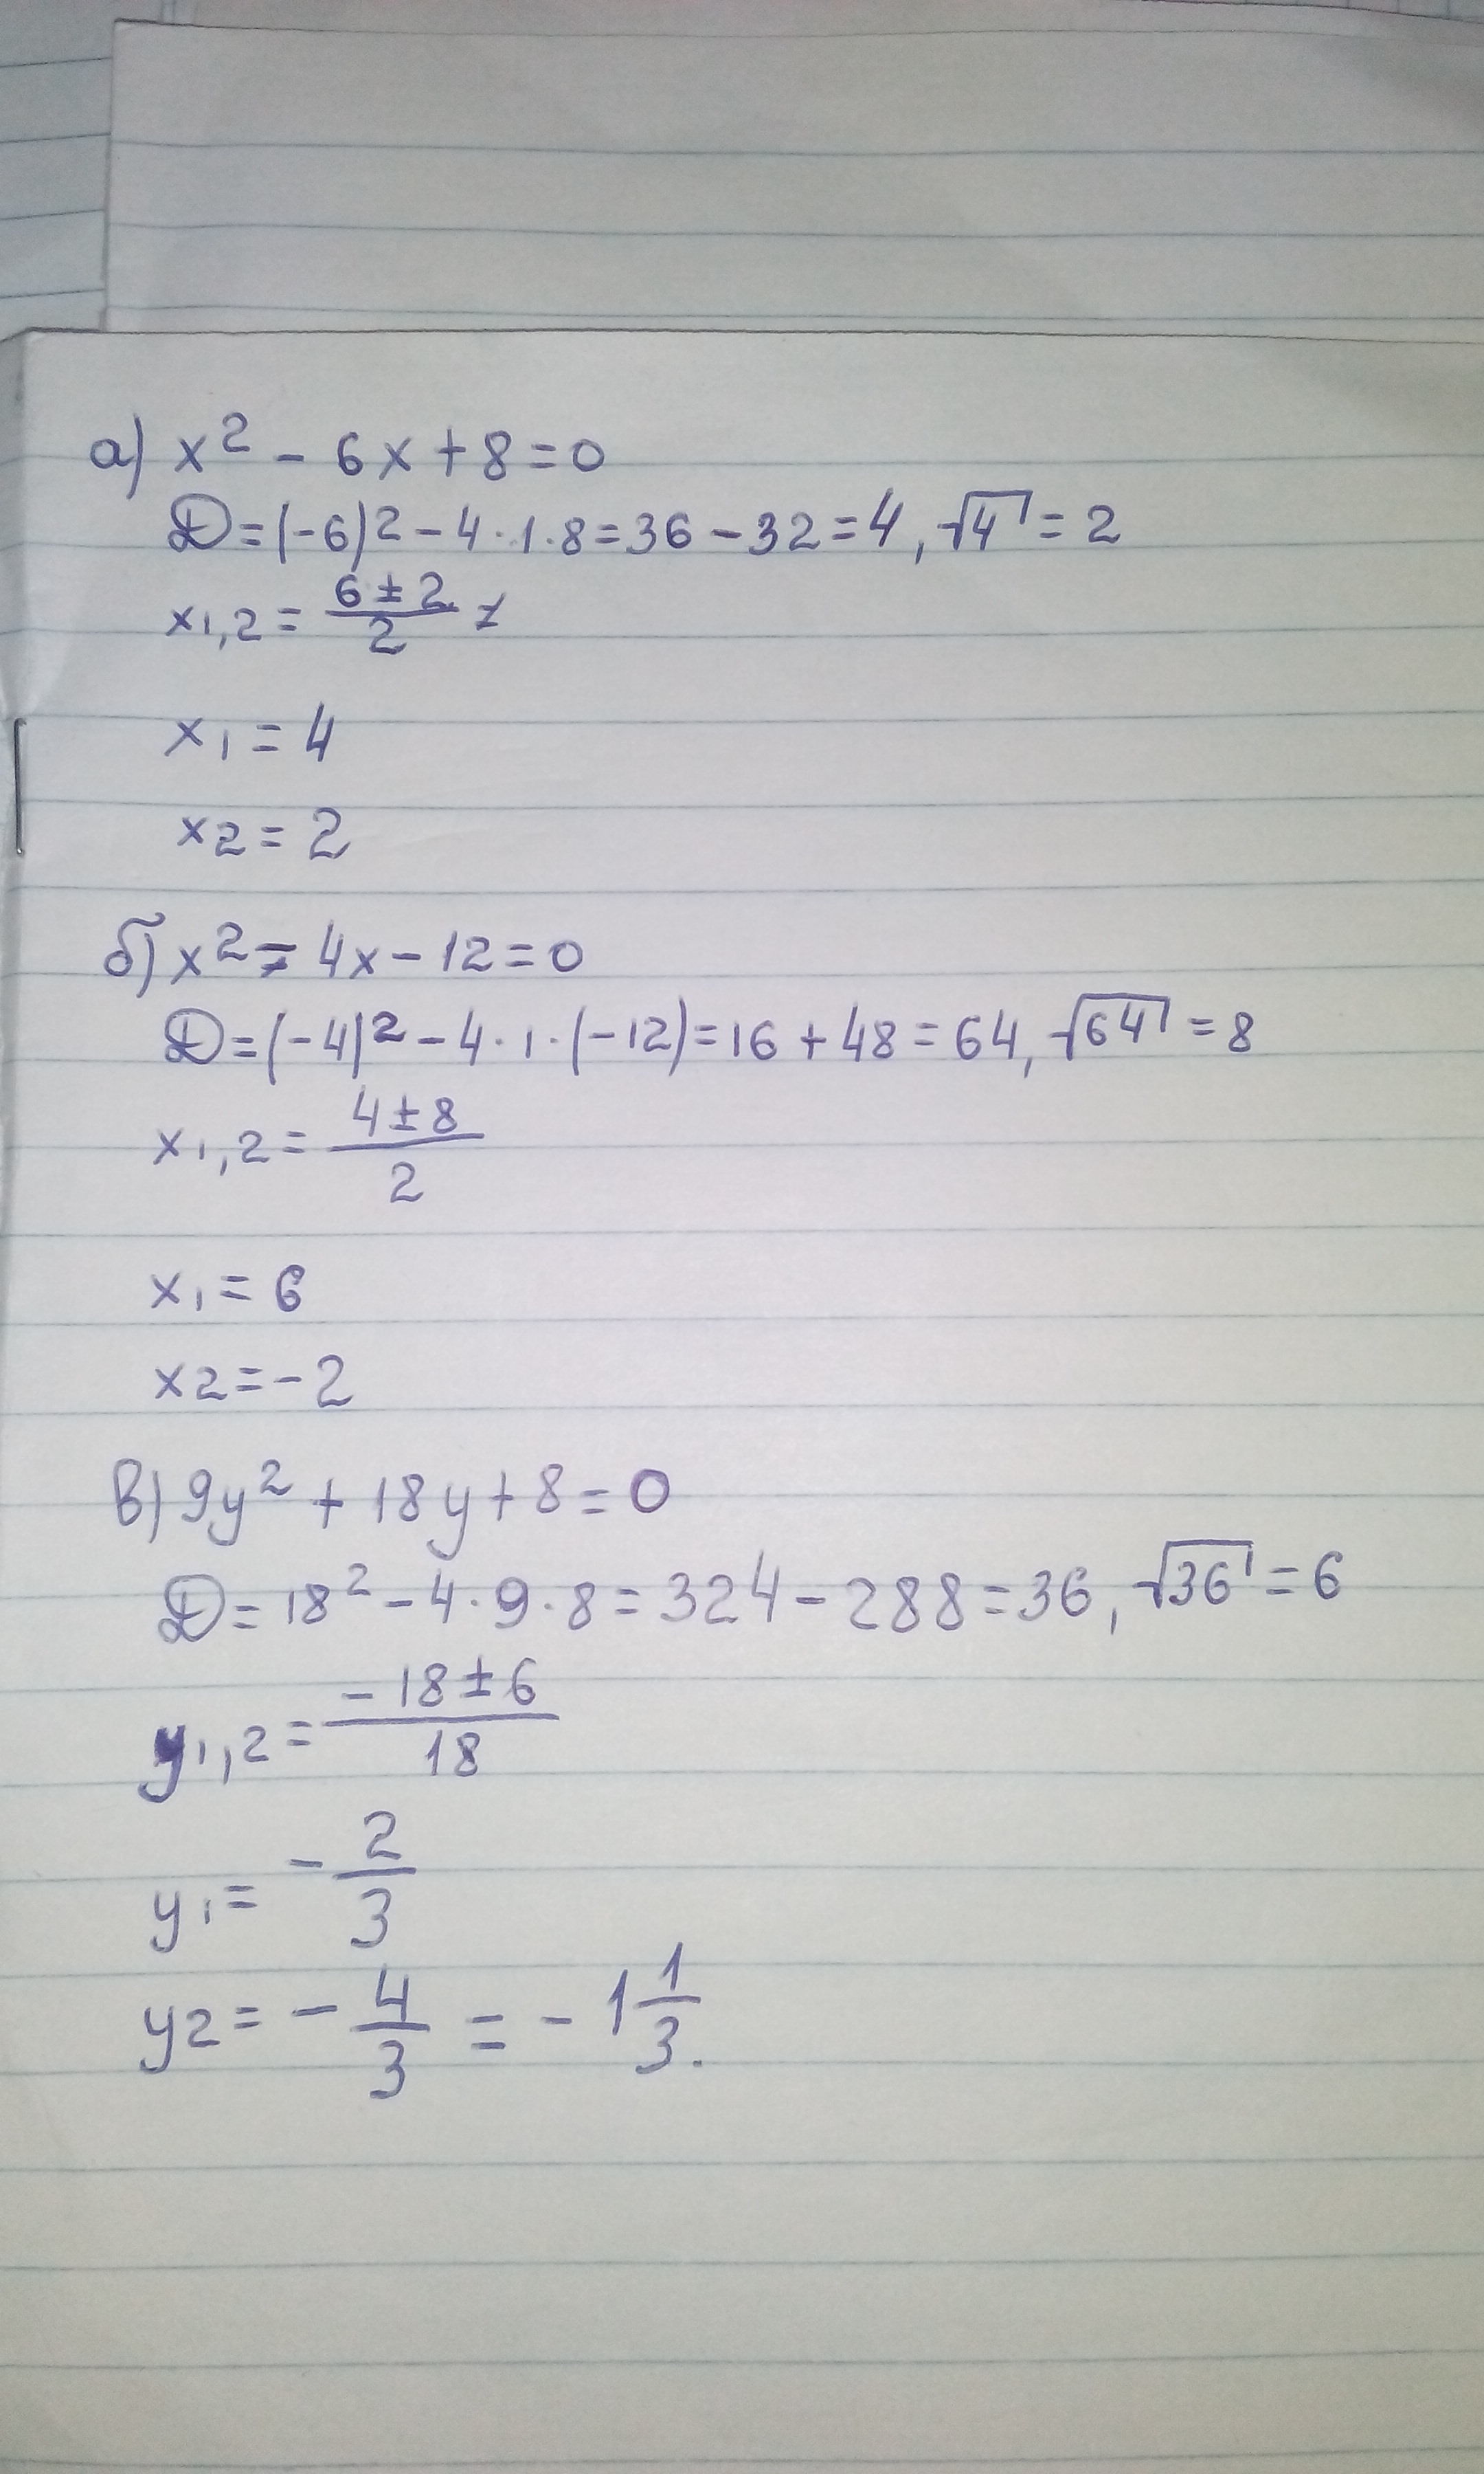 а) x² - 6x + 8 = 0
D = (-6)² - 4 · 1 · 8 = 36 - 32 = 4, √4 = 2
x1,2 = (6 ± 2)/2
x1 = 4
x2 = 2
б) x² - 4x - 12 = 0
D = (-4)² - 4 · 1 · (-12) = 16 + 48 = 64, √64 = 8
x1,2 = (4 ± 8)/2
x1 = 6
x2 = -2
в) 9y² + 18y + 8 = 0
D = 18² - 4 · 9 · 8 = 324 - 288 = 36, √36 = 6
y1,2 = (-18 ± 6)/18
y1 = -2/3
y2 = -4/3 = -1 1/3.